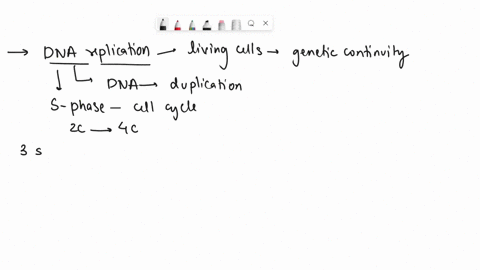 → DNA replication → living cells → genetic continuity
DNA → duplication
S-phase - cell cycle
2C → 4C
3 s